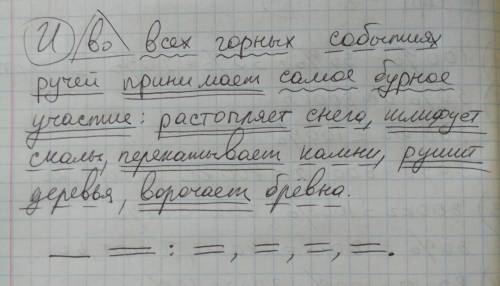 И во всех горных событиях
ручей принимает самое бурное
участие: растопляет снега, шлифует
скалы, перекатывает камни, рушит
деревья, ворочает брёвна.
— = : =, =, =, =.